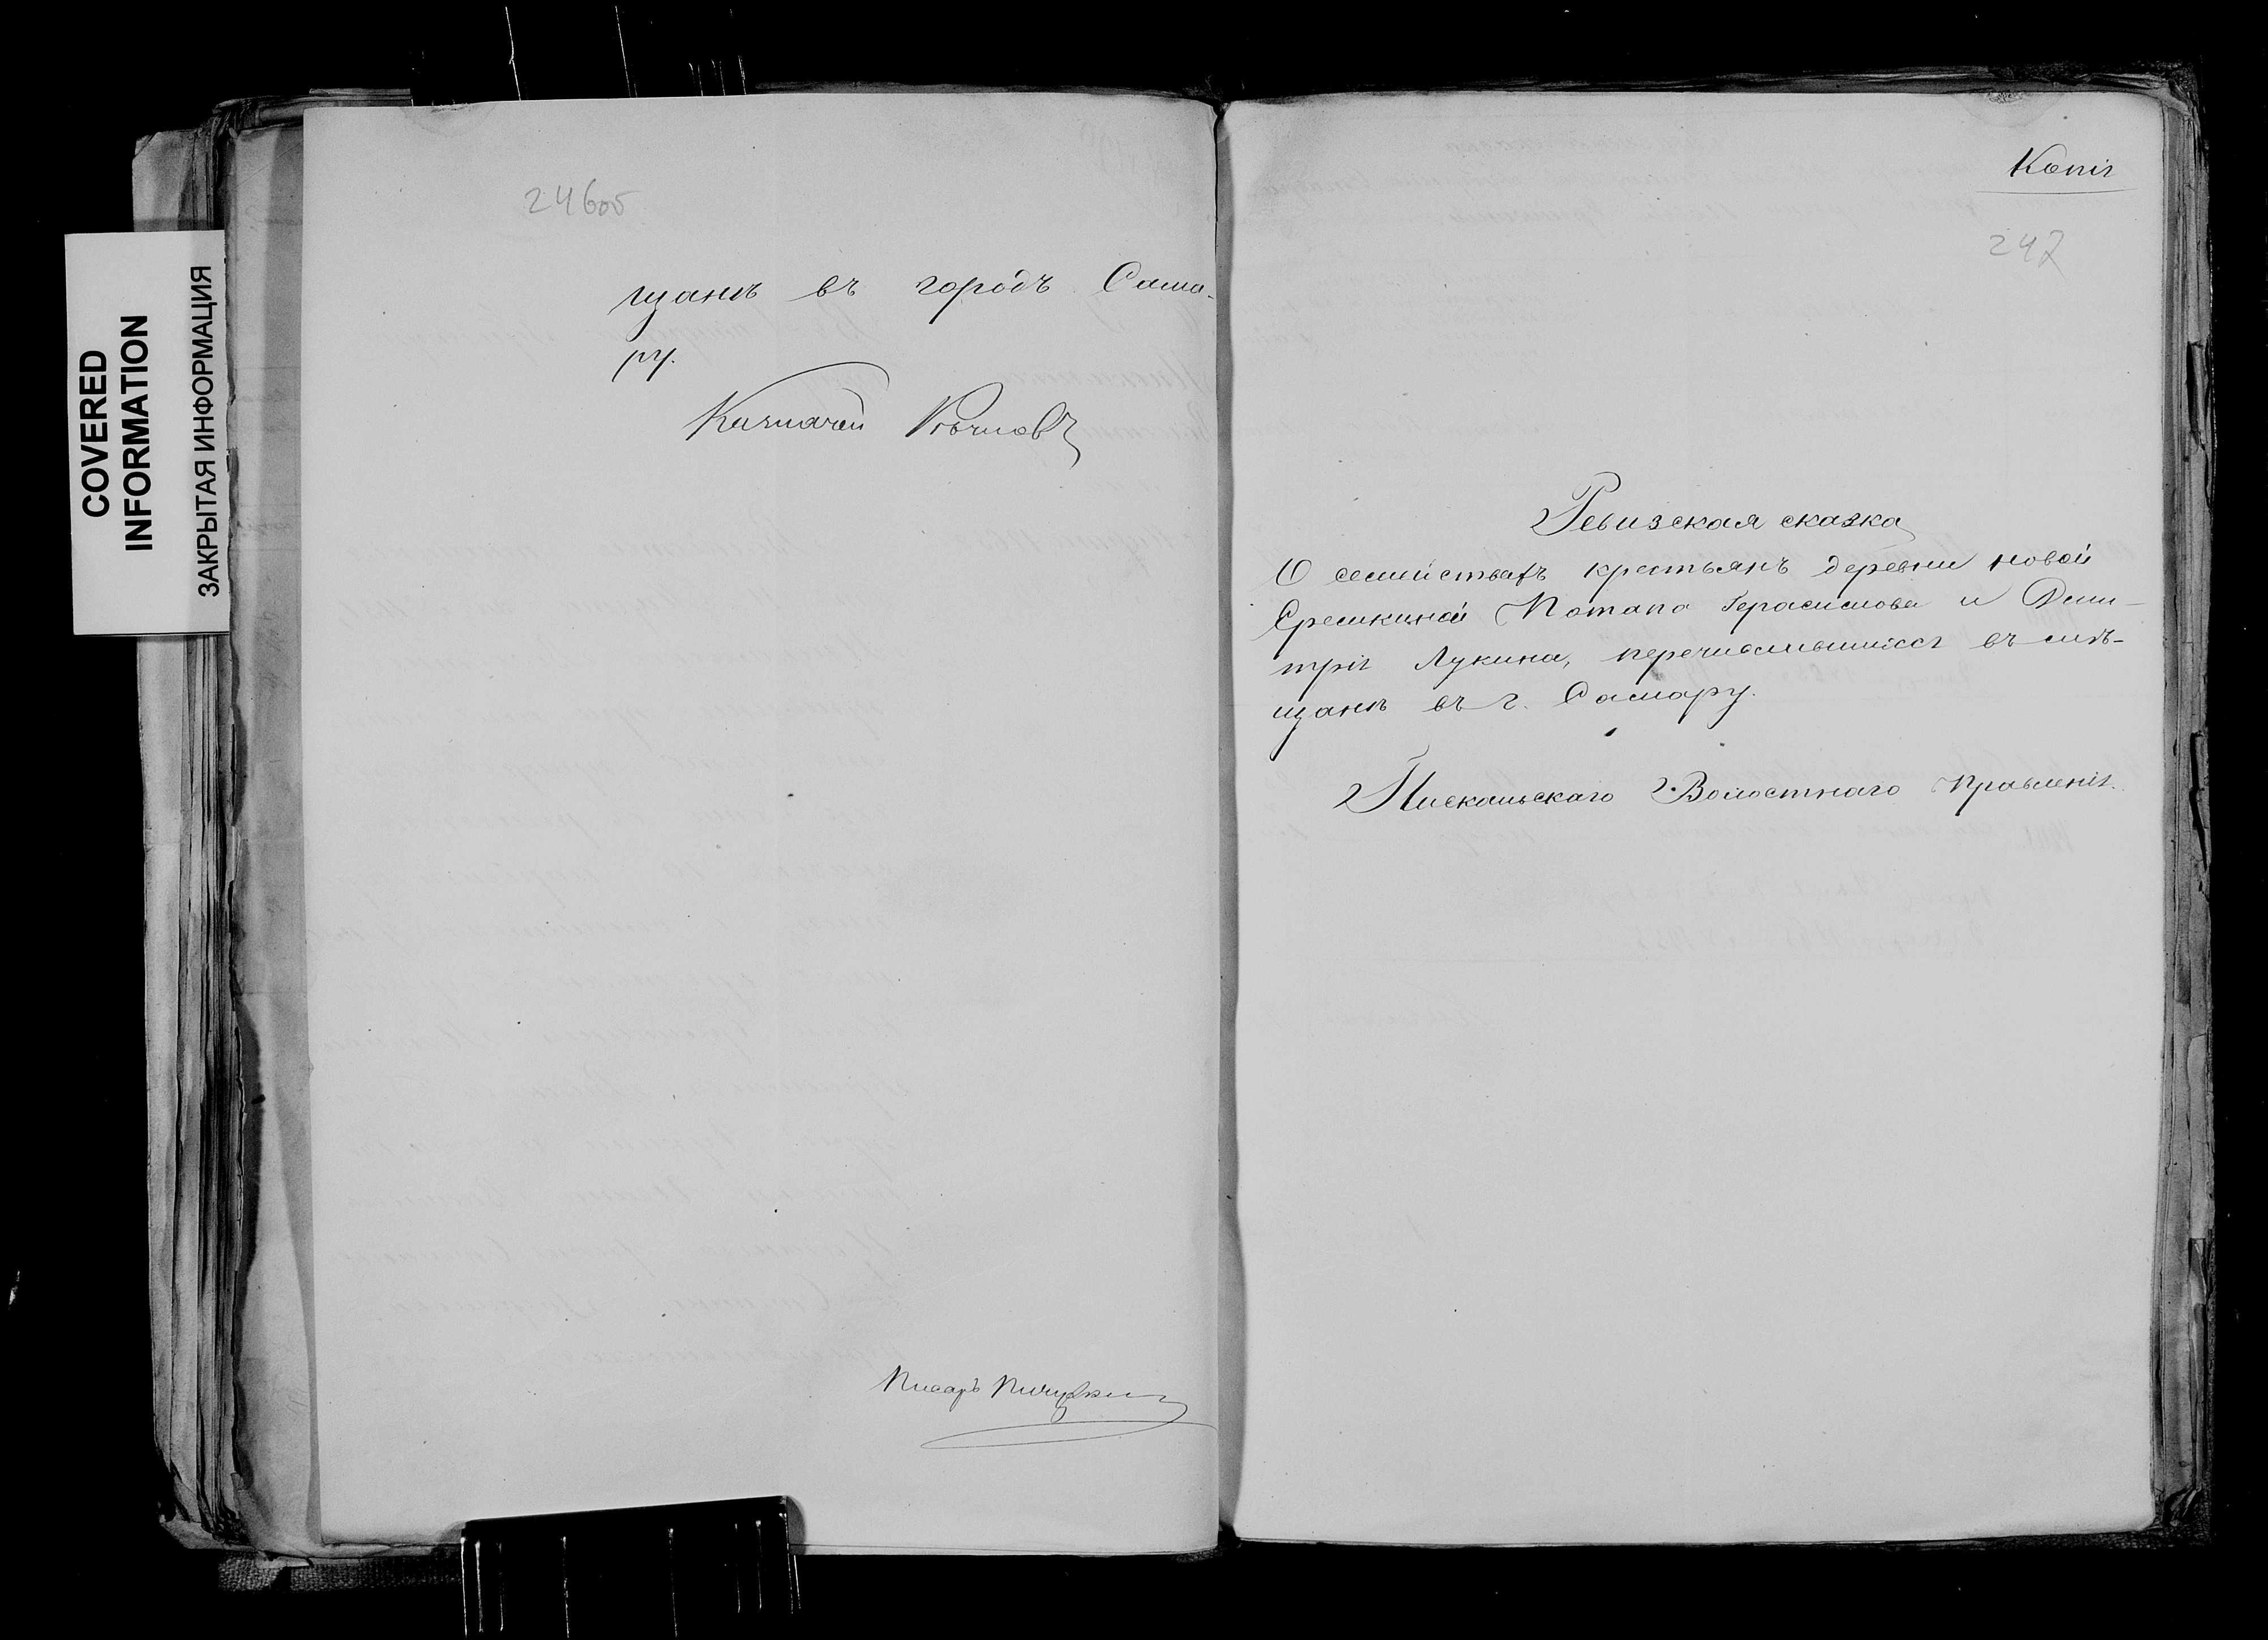 COVERED
INFORMATION
ЗАКРЫТАЯ ИНФОРМАЦИЯ
246об
щане въ городъ Сама-
ру.
Казначей
Писарь
Копія
247
Ревизская сказка
О семействахъ крестьянъ деревни новой
Еремкиной Потапа Герасимова и Дми-
трія Лукина, перечислившихся въ мѣ-
щане въ г. Самару.
Пискальскаго Волостнаго Правленія.